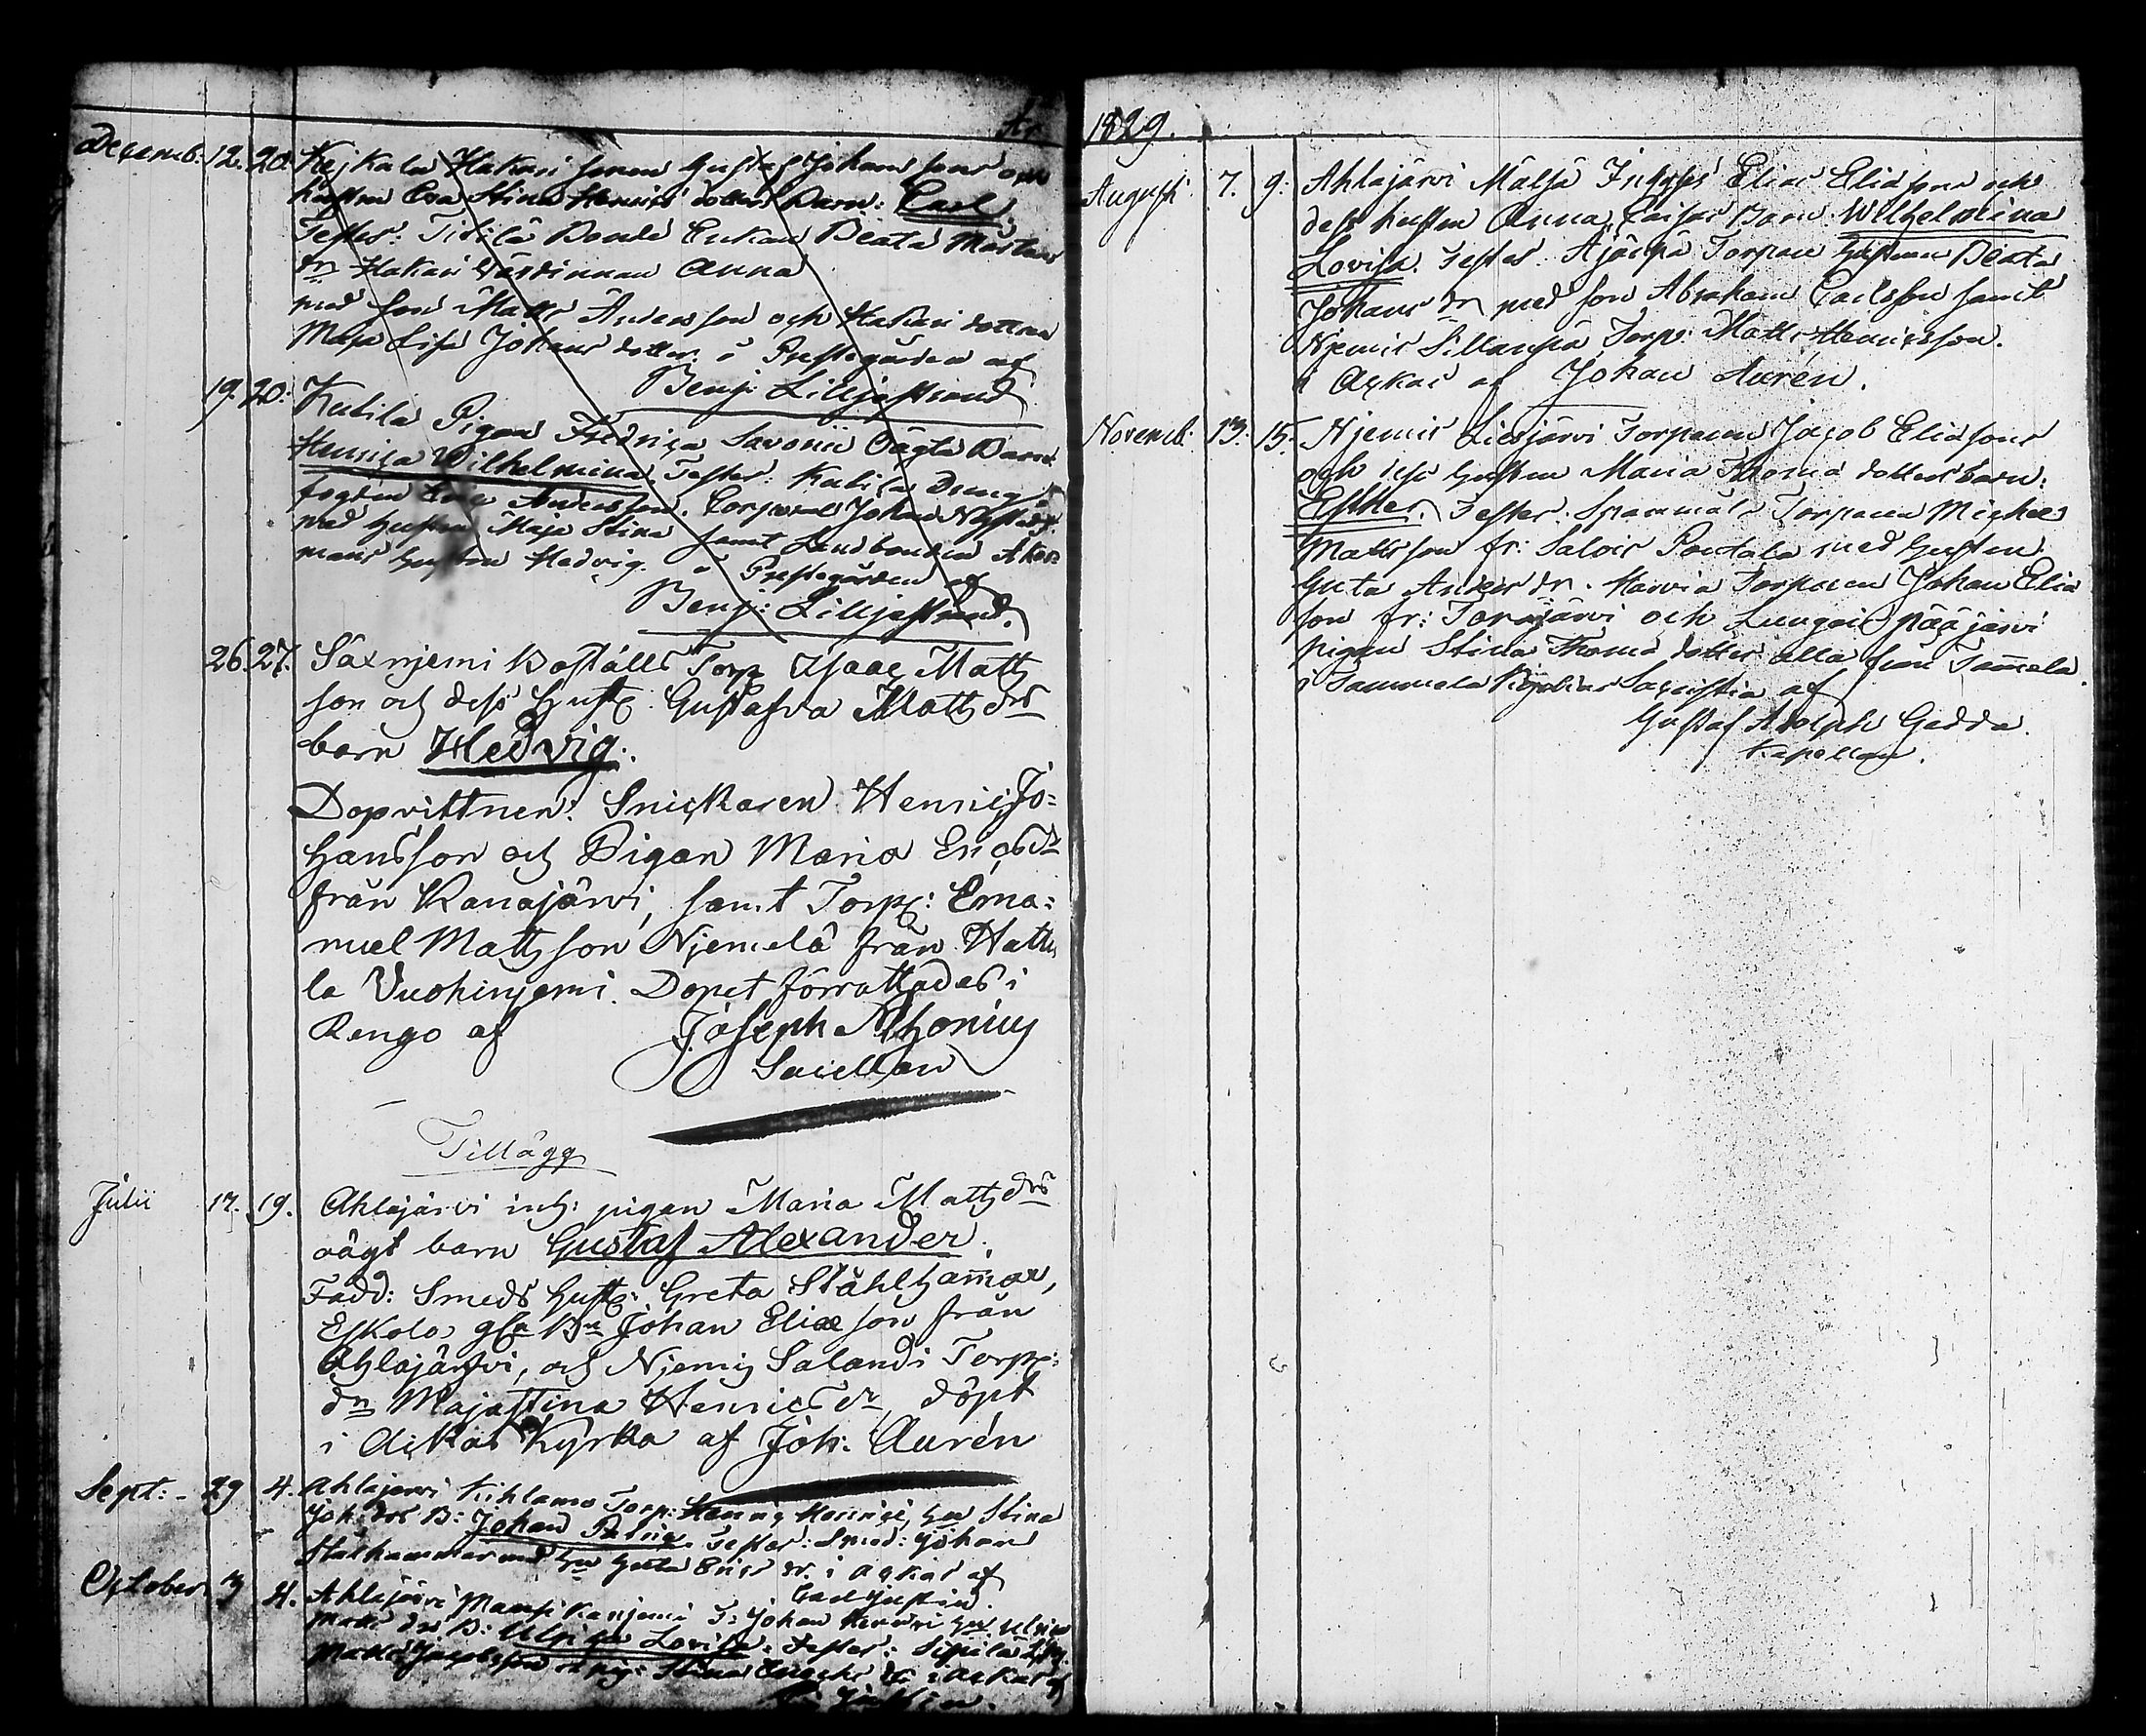 År
Decemb: 12. 20. Kejkala Hakari sonen Gustaf Johans sons och
hustrun Eva Stina Henrics dotters Barn: Carl.
Testes: Bonde Enkan Beata Mårtens
dr Hakari Wärdinnan Anna
med son Matts Andersson och Hakari dottren
Maja Lisa Johans dotter. i Prestegården af
Benj: Lilljestrand
19. 20: Kutila Pigan Fredrica Savonii Oägta Barn
Henrica Wilhelmina. Testes: Kutila Dreng
fogden Andersson. Corporal Johan
med hustrun Maja Stina samt Landbonden Aker=
mans hustru Hedvig. i Prestegården af
Benj: Lilljestrand.
26. 27. Säxnjemi Boställs Torp Isaac Matts
son och dess Hustr: Gustafva Matts drs
barn Hedvig.
Dopvittnen: Snickaren Henric Jo=
hansson och Pigan Maria Ericsdr
från Kanajärvi, samt Torp: Ema=
nuel Mattsson Njemelä från Hattu
la Vuohinjemi. Dopet förrattades i
Rengo af Joseph
Sacellan
Tillägg
Julii 17. 19. Ahlajärvi inh: pigan Maria Matts drs
oägt barn Gustaf Alexander.
Fadd: Smeds Hustr: Greta Ståhlhamar,
Eskola Johan Eliæson från
Ahlajärfvi, och Njemis Salandi Torp:
dn Majastina Henrics dr, döpt
i Ackas Kyrka af Joh: Aurén
Sept: - 29 4. Ahlajervi Kihlamo Torp: Henric Henrics, hu Stina
Joh: drs B: Johan Testes: Smed: Johan
Stålhammar med hu Greta Erics dr. i Ackas af
Carl Justin.
October 3 4. Ahlajärvi T: Johan Henrici hu Ulrica
Matts drs B: Ulrica Lovisa. Testes: Sipilä
Matts Jacobsson pig: Stina dr i Ackas af
Justin.
1829.
August 7. 9: Ahlajärvi Mälsä Inhyses Elias Eliasons och
dess hustru Anna Caisas Barn Wilhelmina
Lovisa. Testes: Äjäepä Torpare hustrun Beata
Johans dr med son Abraham Carlsson samt
Njemis Sillanpä Torp: Matts Henricsson.
i Ackas af Johan Aurén.
Novemb: 13. 15. Njemis Liesjärvi Torparen Jacob Eliasons
och dess hustru Maria Thomæ dotters barn:
Esther. Testes. Torparen Michel
Mattsson fr: Salois Pontala med hustrun
Greta Anders dr. Harvia Torparen Johan Elia
son fr: Torajärvi och Lungois pääjärvi
pigan Stina Thomæ dotter alla från Tammela.
i Tammela Kyrkas Sacristia af
Gustaf Adolph Gadda.
Kapellan.